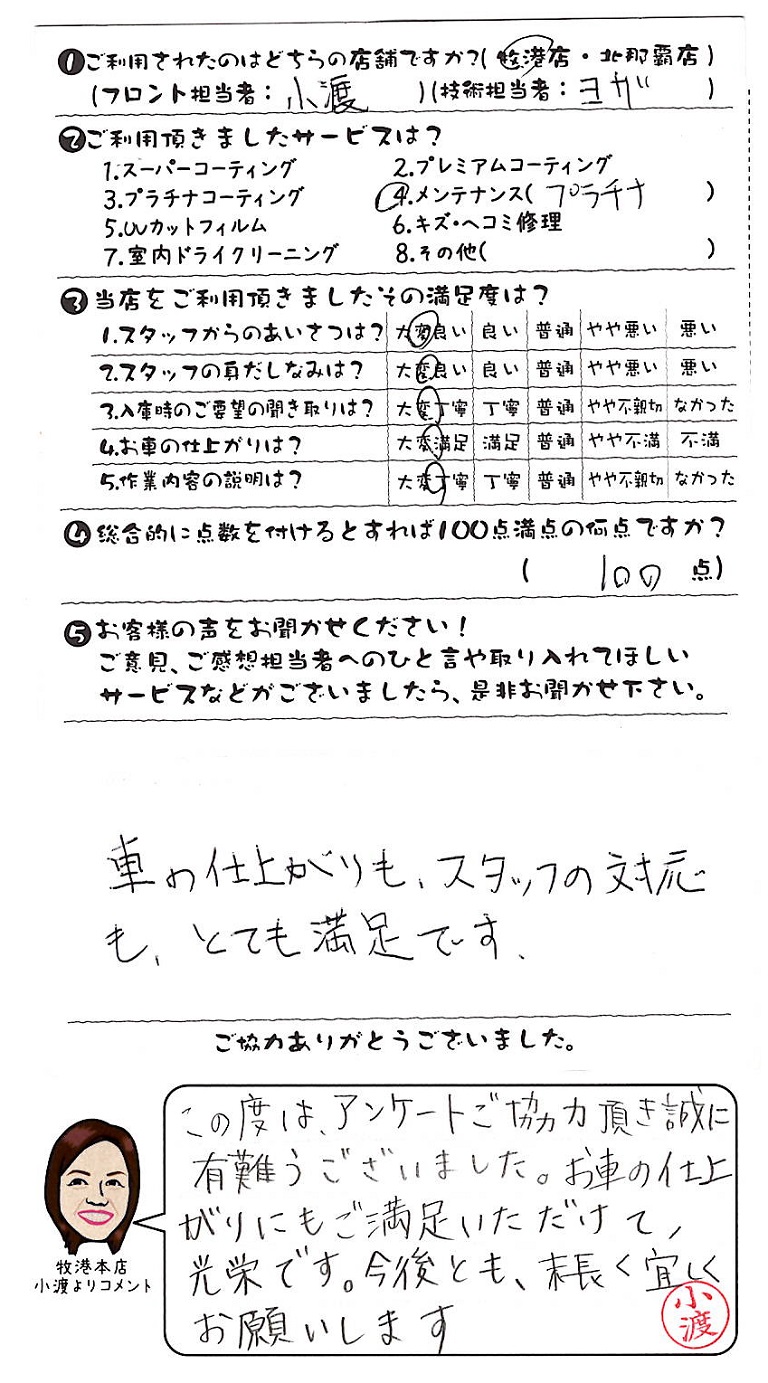 ❶ご利用されたのはどちらの店舗ですか?(牧港店・北那覇店)
(フロント担当者: 小渡 )(技術担当者: ヨガ )
❷ご利用頂きましたサービスは?
1.スーパーコーティング 2.プレミアムコーティング
3.プラチナコーティング 4.メンテナンス( プラチナ )
5.UVカットフィルム 6.キズ・ヘコミ修理
7.室内ドライクリーニング 8.その他( )
❸当店をご利用頂きましたその満足度は?
1.スタッフからのあいさつは? 大変良い 良い 普通 やや悪い 悪い
2.スタッフの身だしなみは? 大変良い 良い 普通 やや悪い 悪い
3.入庫時のご要望の聞き取りは? 大変丁寧 丁寧 普通 やや不親切 なかった
4.お車の仕上がりは? 大変満足 満足 普通 やや不満 不満
5.作業内容の説明は? 大変丁寧 丁寧 普通 やや不親切 なかった
❹総合的に点数を付けるとすれば100点満点の何点ですか?
( 100 点)
❺お客様の声をお聞かせください!
ご意見、ご感想担当者へのひと言や取り入れてほしい
サービスなどがございましたら、是非お聞かせ下さい。
車の仕上がりも、スタッフの対応
も、とても満足です、
ご協力ありがとうございました。
この度は、アンケートご協力頂き誠に
有難うございました。お車の仕上
がりにもご満足いただけて、
光栄です。今後とも、末長く宜しく
お願いします
小渡
牧港本店
小渡よりコメント